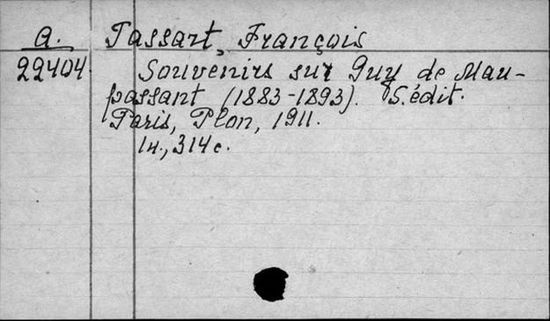 A. Tassart, François
22404 Souvenirs sur Guy de Mau-
passant (1883-1893). 5.édit.
Paris, Plon, 1911.
1н., 314с.